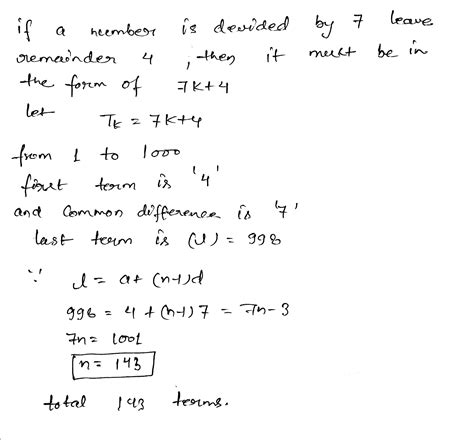 if a number is devided by 7 leave
remainder 4 , then it must be in
the form of 7K+4
let Tk = 7K+4
from 1 to 1000
first term is '4'
and common difference is '7'
last term is (l) = 998
∵ l = a+ (n-1)d
998 = 4 + (n-1) 7 = 7n-3
7n = 1001
n = 143
total 143 terms.